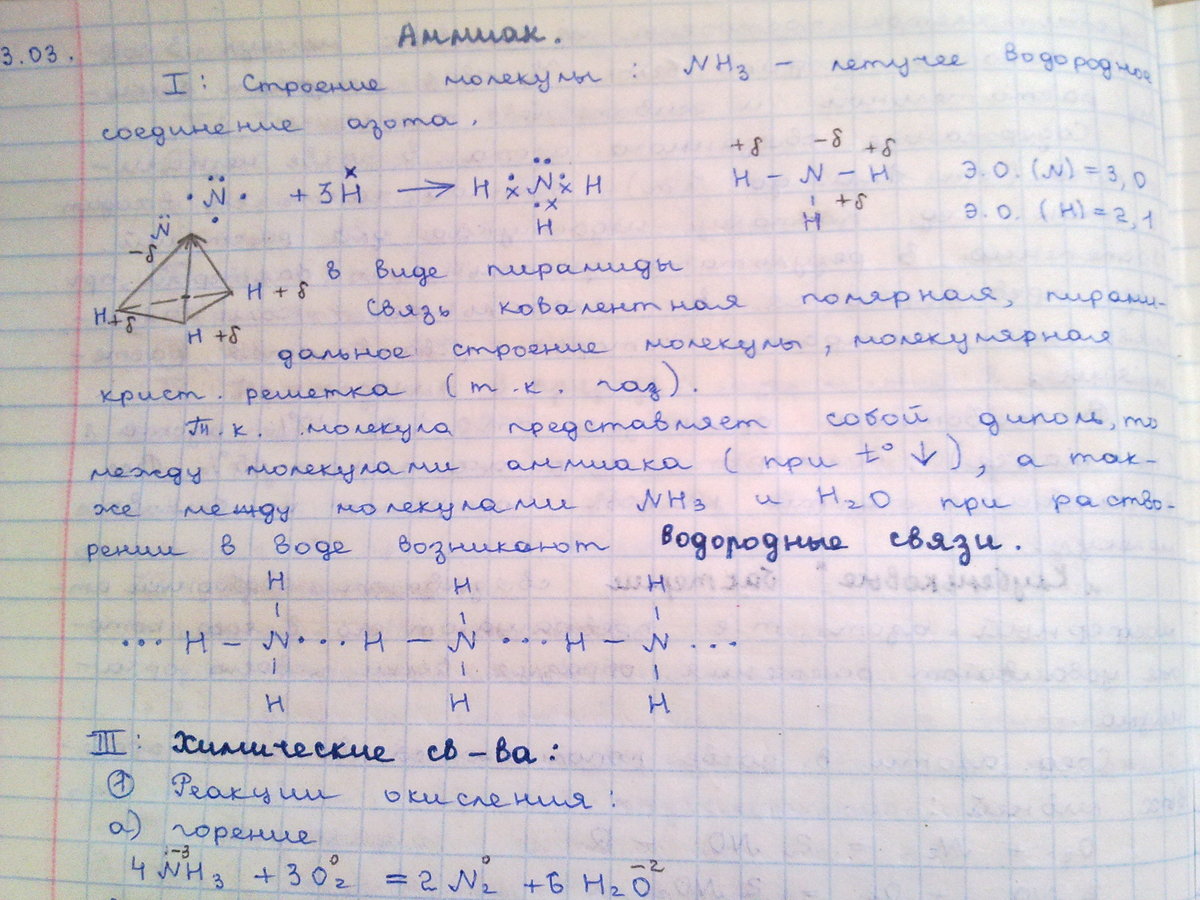 3.03.
Аммиак.
I: Строение молекулы: NH₃ – летучее водородное
соединение азота.
+δ −δ +δ
·N̈· + 3H → H ·x N x· H H – N – H Э.О. (N) = 3,0
H H +δ Э.О. (H) = 2,1
N̈
−δ
в виде пирамиды
H +δ
H +δ
H +δ
связь ковалентная полярная, пирами-
дальное строение молекулы, молекулярная
крист. решетка (т.к. газ).
Т.к. молекула представляет собой диполь, то
между молекулами аммиака (при t° ↓), а так-
же между молекулами NH₃ и H₂O при раство-
рении в воде возникают водородные связи.
H H H
... H – N ... H – N ... H – N ...
H H H
III: Химические св-ва:
① Реакции окисления:
а) горение
−3 0 0 −2
4NH₃ + 3O₂ = 2N₂ + 6H₂O